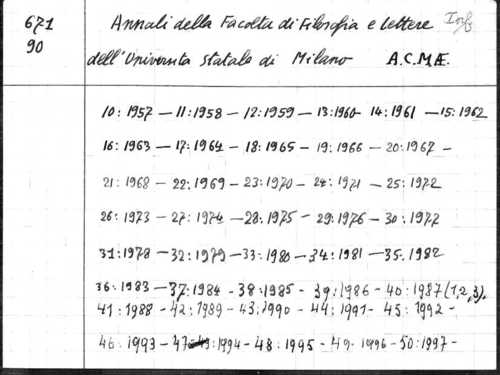 671
90
Annali della Facolta di Filosofia e lettere
dell'Universita statale di Milano A.C.MÆ.
10:1957 - 11:1958 - 12:1959 - 13:1960 - 14:1961 - 15:1962
16:1963 - 17:1964 - 18:1965 - 19:1966 - 20:1967 -
21:1968 - 22:1969 - 23:1970 - 24:1971 - 25:1972
26:1973 - 27:1974 - 28:1975 - 29:1976 - 30:1977
31:1978 - 32:1979 - 33:1980 - 34:1981 - 35.1982
36:1983 - 37:1984 - 38:1985 - 39:1986 - 40:1987 (1,2,3).
41:1988 - 42:1989 - 43:1990 - 44:1991 - 45:1992 -
46:1993 - 47:1994 - 48:1995 - 49.1996 - 50:1997 -